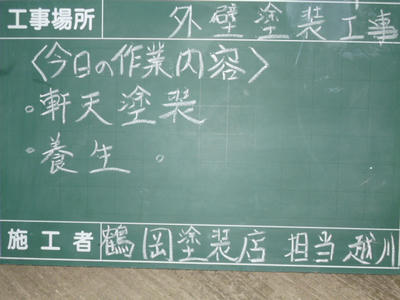 工事場所 外壁塗装工事
〈今日の作業内容〉
。軒天塗装
。養生 。
施工者 鶴岡塗装店 担当越川